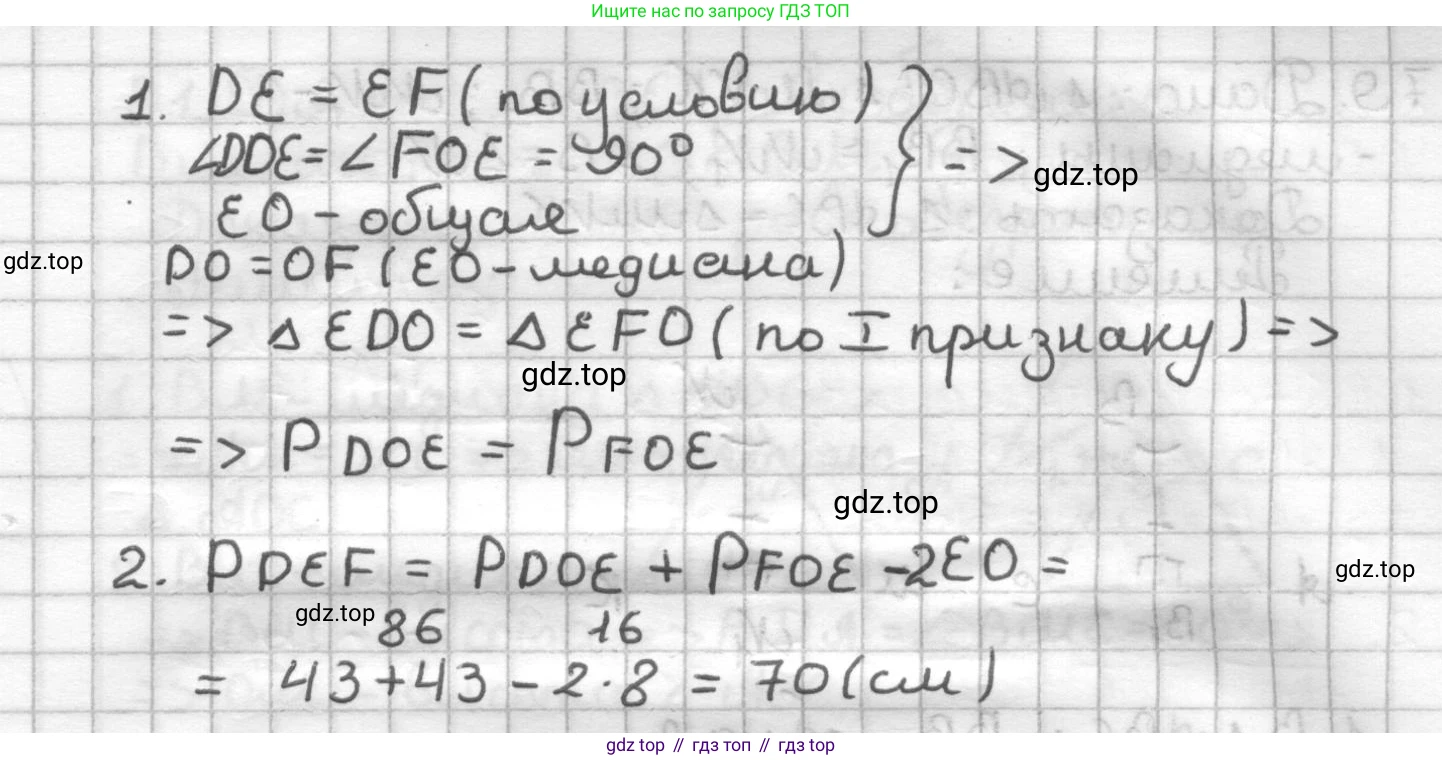 Ищите нас по запросу ГДЗ ТОП
1. DE = EF (по условию)
∠DOE = ∠FOE = 90°
=> gdz.top
EO - общая
gdz.top
DO = OF (EO - медиана)
=> Δ EDO = Δ EFO (по I признаку) =>
gdz.top
=> P DOE = P FOE
gdz.top
2. P DEF = P DOE + P FOE - 2EO =
gdz.top
gdz.top 86 16
= 43 + 43 - 2 · 8 = 70 (см)
gdz top // гдз топ // гдз top